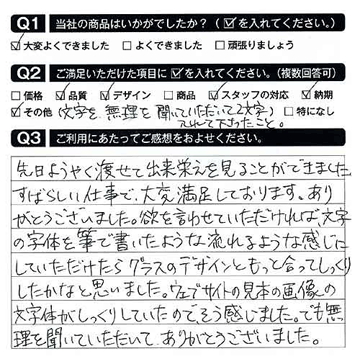 Q1 当社の商品はいかがでしたか？（☑を入れてください。）
☑大変よくできました □よくできました □頑張りましょう
Q2 ご満足いただけた項目に☑を入れてください。（複数回答可）
□価格 ☑品質 ☑デザイン □商品 ☑スタッフの対応 ☑納期
☑その他（文字を無理を聞いていただいて2文字）□特になし
入れて下さったこと。
Q3 ご利用にあたってご感想をおよせください。
先日ようやく渡せて出来栄えを見ることができました。
すばらしい仕事で、大変満足しております。あり
がとうございました。欲を言わせていただければ、文字
の字体を筆で書いたような流れるような感じに
していただけたらグラスのデザインともっと合ってしっくり
したかなと思いました。ウェブサイトの見本の画像の
文字体がしっくりしていたのでそう感じました。でも無
理を聞いていただいて、ありがとうございました。